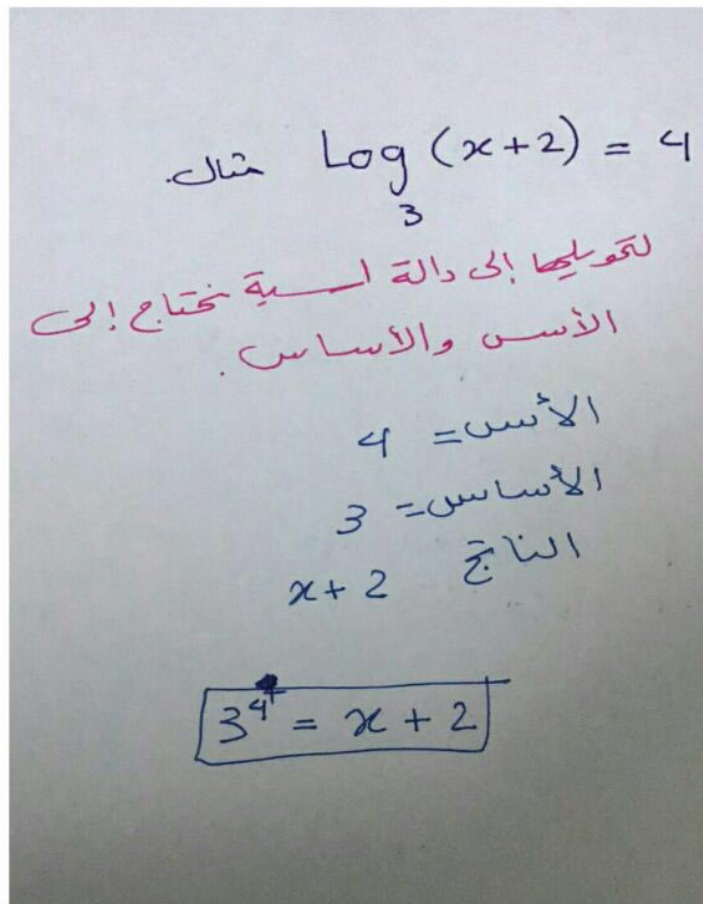 مثال. Log₃ (x+2) = 4
لتحويلها إلى دالة اسية نحتاج إلى
الأسس والأساس.
الأس= 4
الأساس= 3
الناتج x+2
3⁴ = x + 2